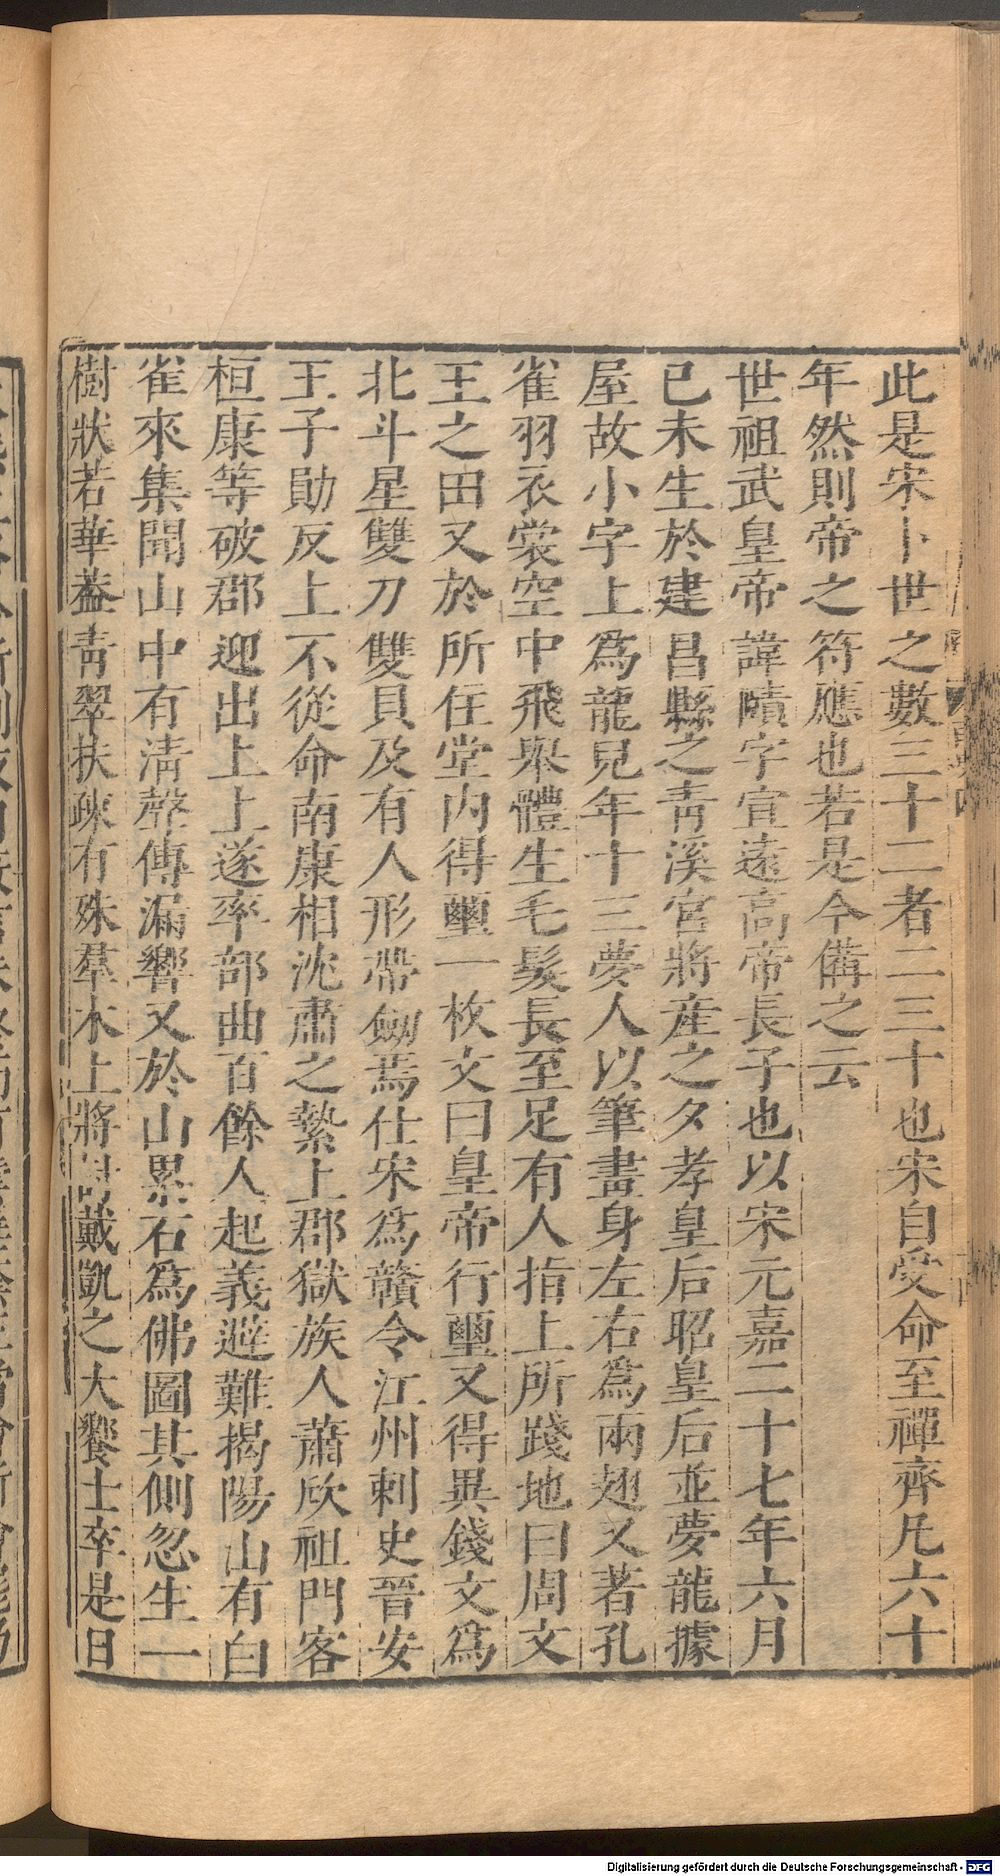 此是宋卜世之數三十二者二三十也宋自受命至禪齊凡六十
年然則帝之符應也若是今備之云
世祖武皇帝諱賾字宣遠高帝長子也以宋元嘉二十七年六月
已未生於建昌縣之青溪宮將產之夕孝皇后昭皇后並夢龍據
屋故小字上爲龍兒年十三夢人以筆畫身左右爲兩翅又著孔
雀羽衣裳空中飛舉體生毛髮長至足有人指上所踐地曰周文
王之田又於所住堂內得璽一枚文曰皇帝行璽又得異錢文爲
北斗星雙刀雙貝及有人形帶劒焉仕宋爲贛令江州刺史晉安
王子勛反上不從命南康相沈肅之縶上郡獄族人蕭欣祖門客
桓康等破郡迎出上上遂率部曲百餘人起義避難揭陽山有白
雀來集聞山中有清聲傳漏響又於山累石爲佛圖其側忽生一
樹狀若華蓋青翠扶疎有殊羣木上將討戴凱之大饗士卒是日
Digitalisierung gefördert durch die Deutsche Forschungsgemeinschaft - DFG